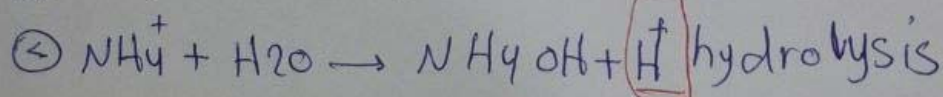 ② NH4⁺ + H2O → NH4OH + H⁺ hydrolysis